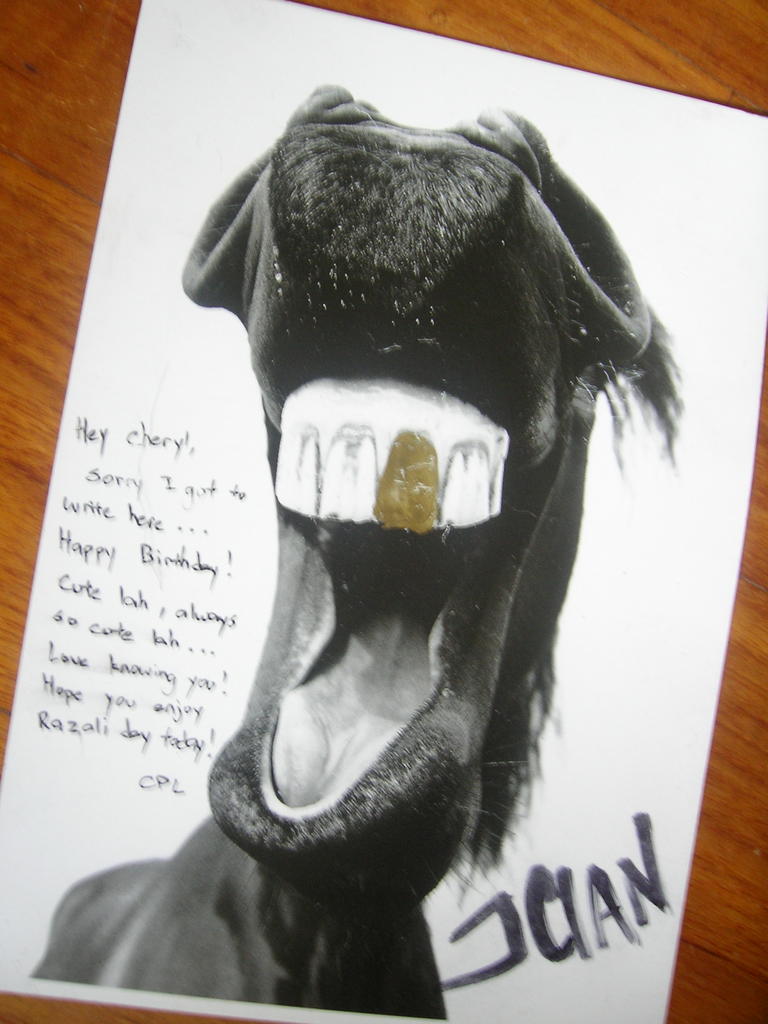 Hey Cheryl,
Sorry I got to
write here ...
Happy Birthday!
Cute lah, always
so cute lah ...
Love knowing you!
Hope you enjoy
Razali day today!
CPL
JCIAN